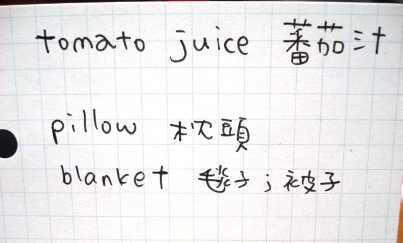 tomato juice 蕃茄汁
pillow 枕頭
blanket 毯子；被子